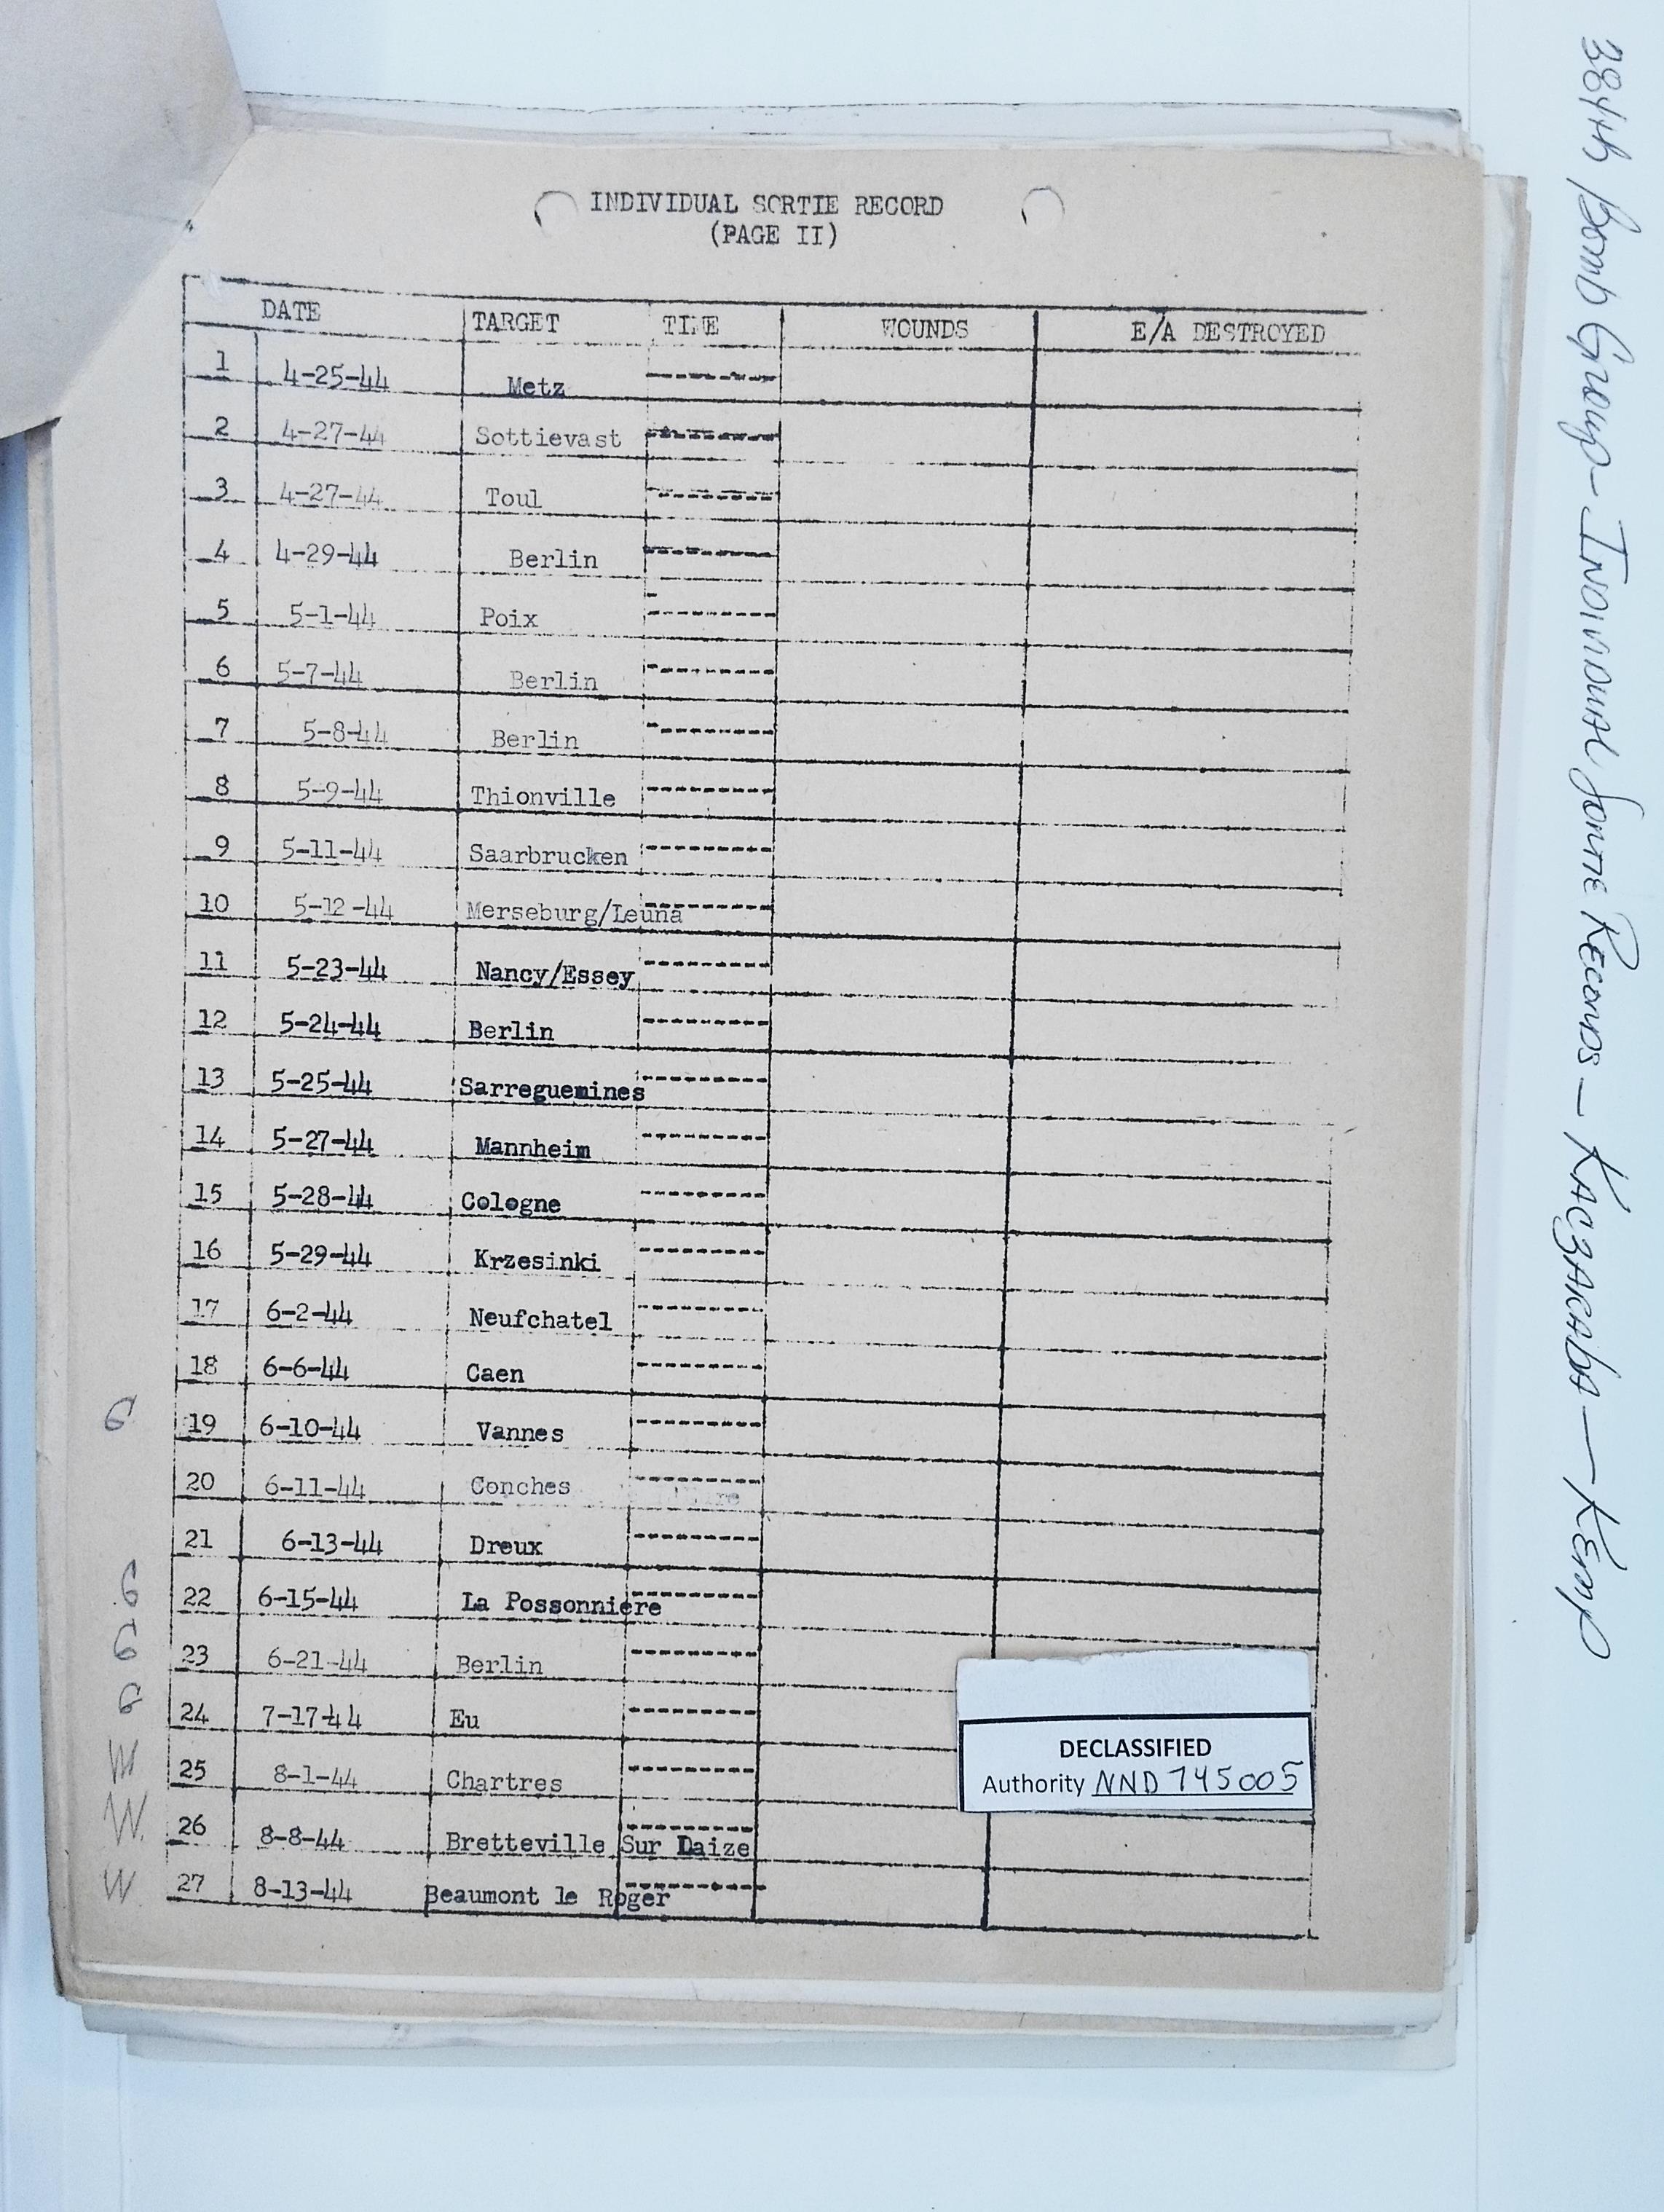 INDIVIDUAL SORTIE RECORD
(PAGE II)
DATE TARGET TIME WOUNDS E/A DESTROYED
1 4-25-44 Metz ----------
2 4-27-44 Sottievast ----------
3 4-27-44 Toul ----------
4 4-29-44 Berlin ----------
5 5-1-44 Poix ----------
6 5-7-44 Berlin ----------
7 5-8-44 Berlin ----------
8 5-9-44 Thionville ----------
9 5-11-44 Saarbrucken ----------
10 5-12-44 Merseburg/Leuna ----------
11 5-23-44 Nancy/Essey ----------
12 5-24-44 Berlin ----------
13 5-25-44 Sarreguemines ----------
14 5-27-44 Mannheim ----------
15 5-28-44 Cologne ----------
16 5-29-44 Krzesinki ----------
17 6-2-44 Neufchatel ----------
18 6-6-44 Caen ----------
G 19 6-10-44 Vannes ----------
20 6-11-44 Conches ----------
21 6-13-44 Dreux ----------
G 22 6-15-44 La Possonniere ----------
G 23 6-21-44 Berlin ----------
G 24 7-17-44 Eu ----------
W 25 8-1-44 Chartres ----------
W. 26 8-8-44 Bretteville Sur Laize ----------
W 27 8-13-44 Beaumont le Roger ----------
DECLASSIFIED
Authority NND 745005
384th Bomb Group - Individual Sortie Records - Kaczaraba - Kemp